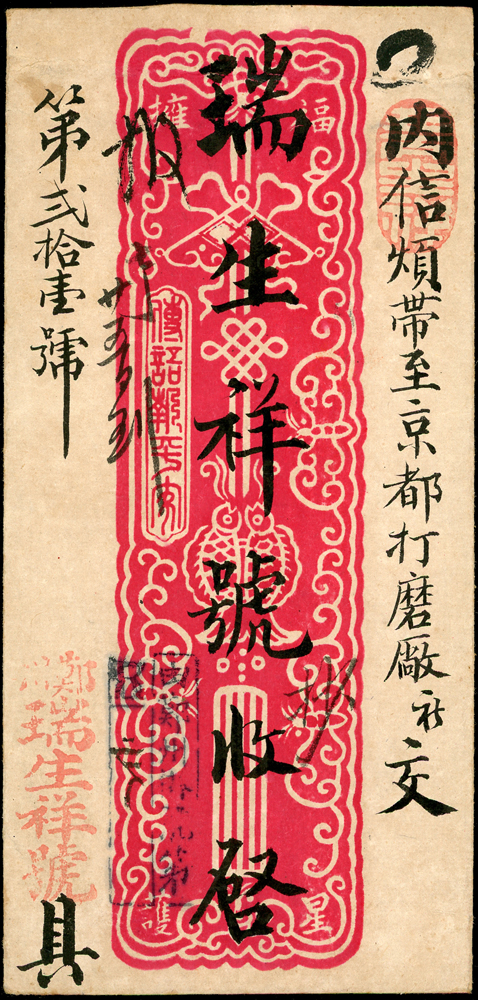 內信煩帶至京都打磨廠祈交
瑞生祥號收啓
福
星
擁
護
傳語報平安
第弍拾壹號
鄭州
瑞生祥號
具